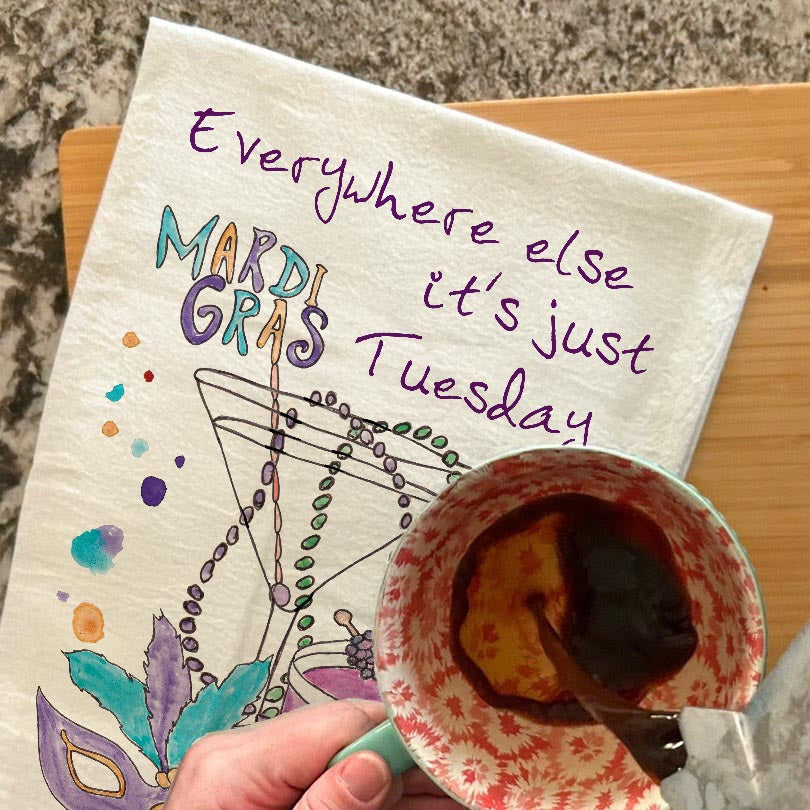 Everywhere else
it's just
Tuesday
MARDI
GRAS